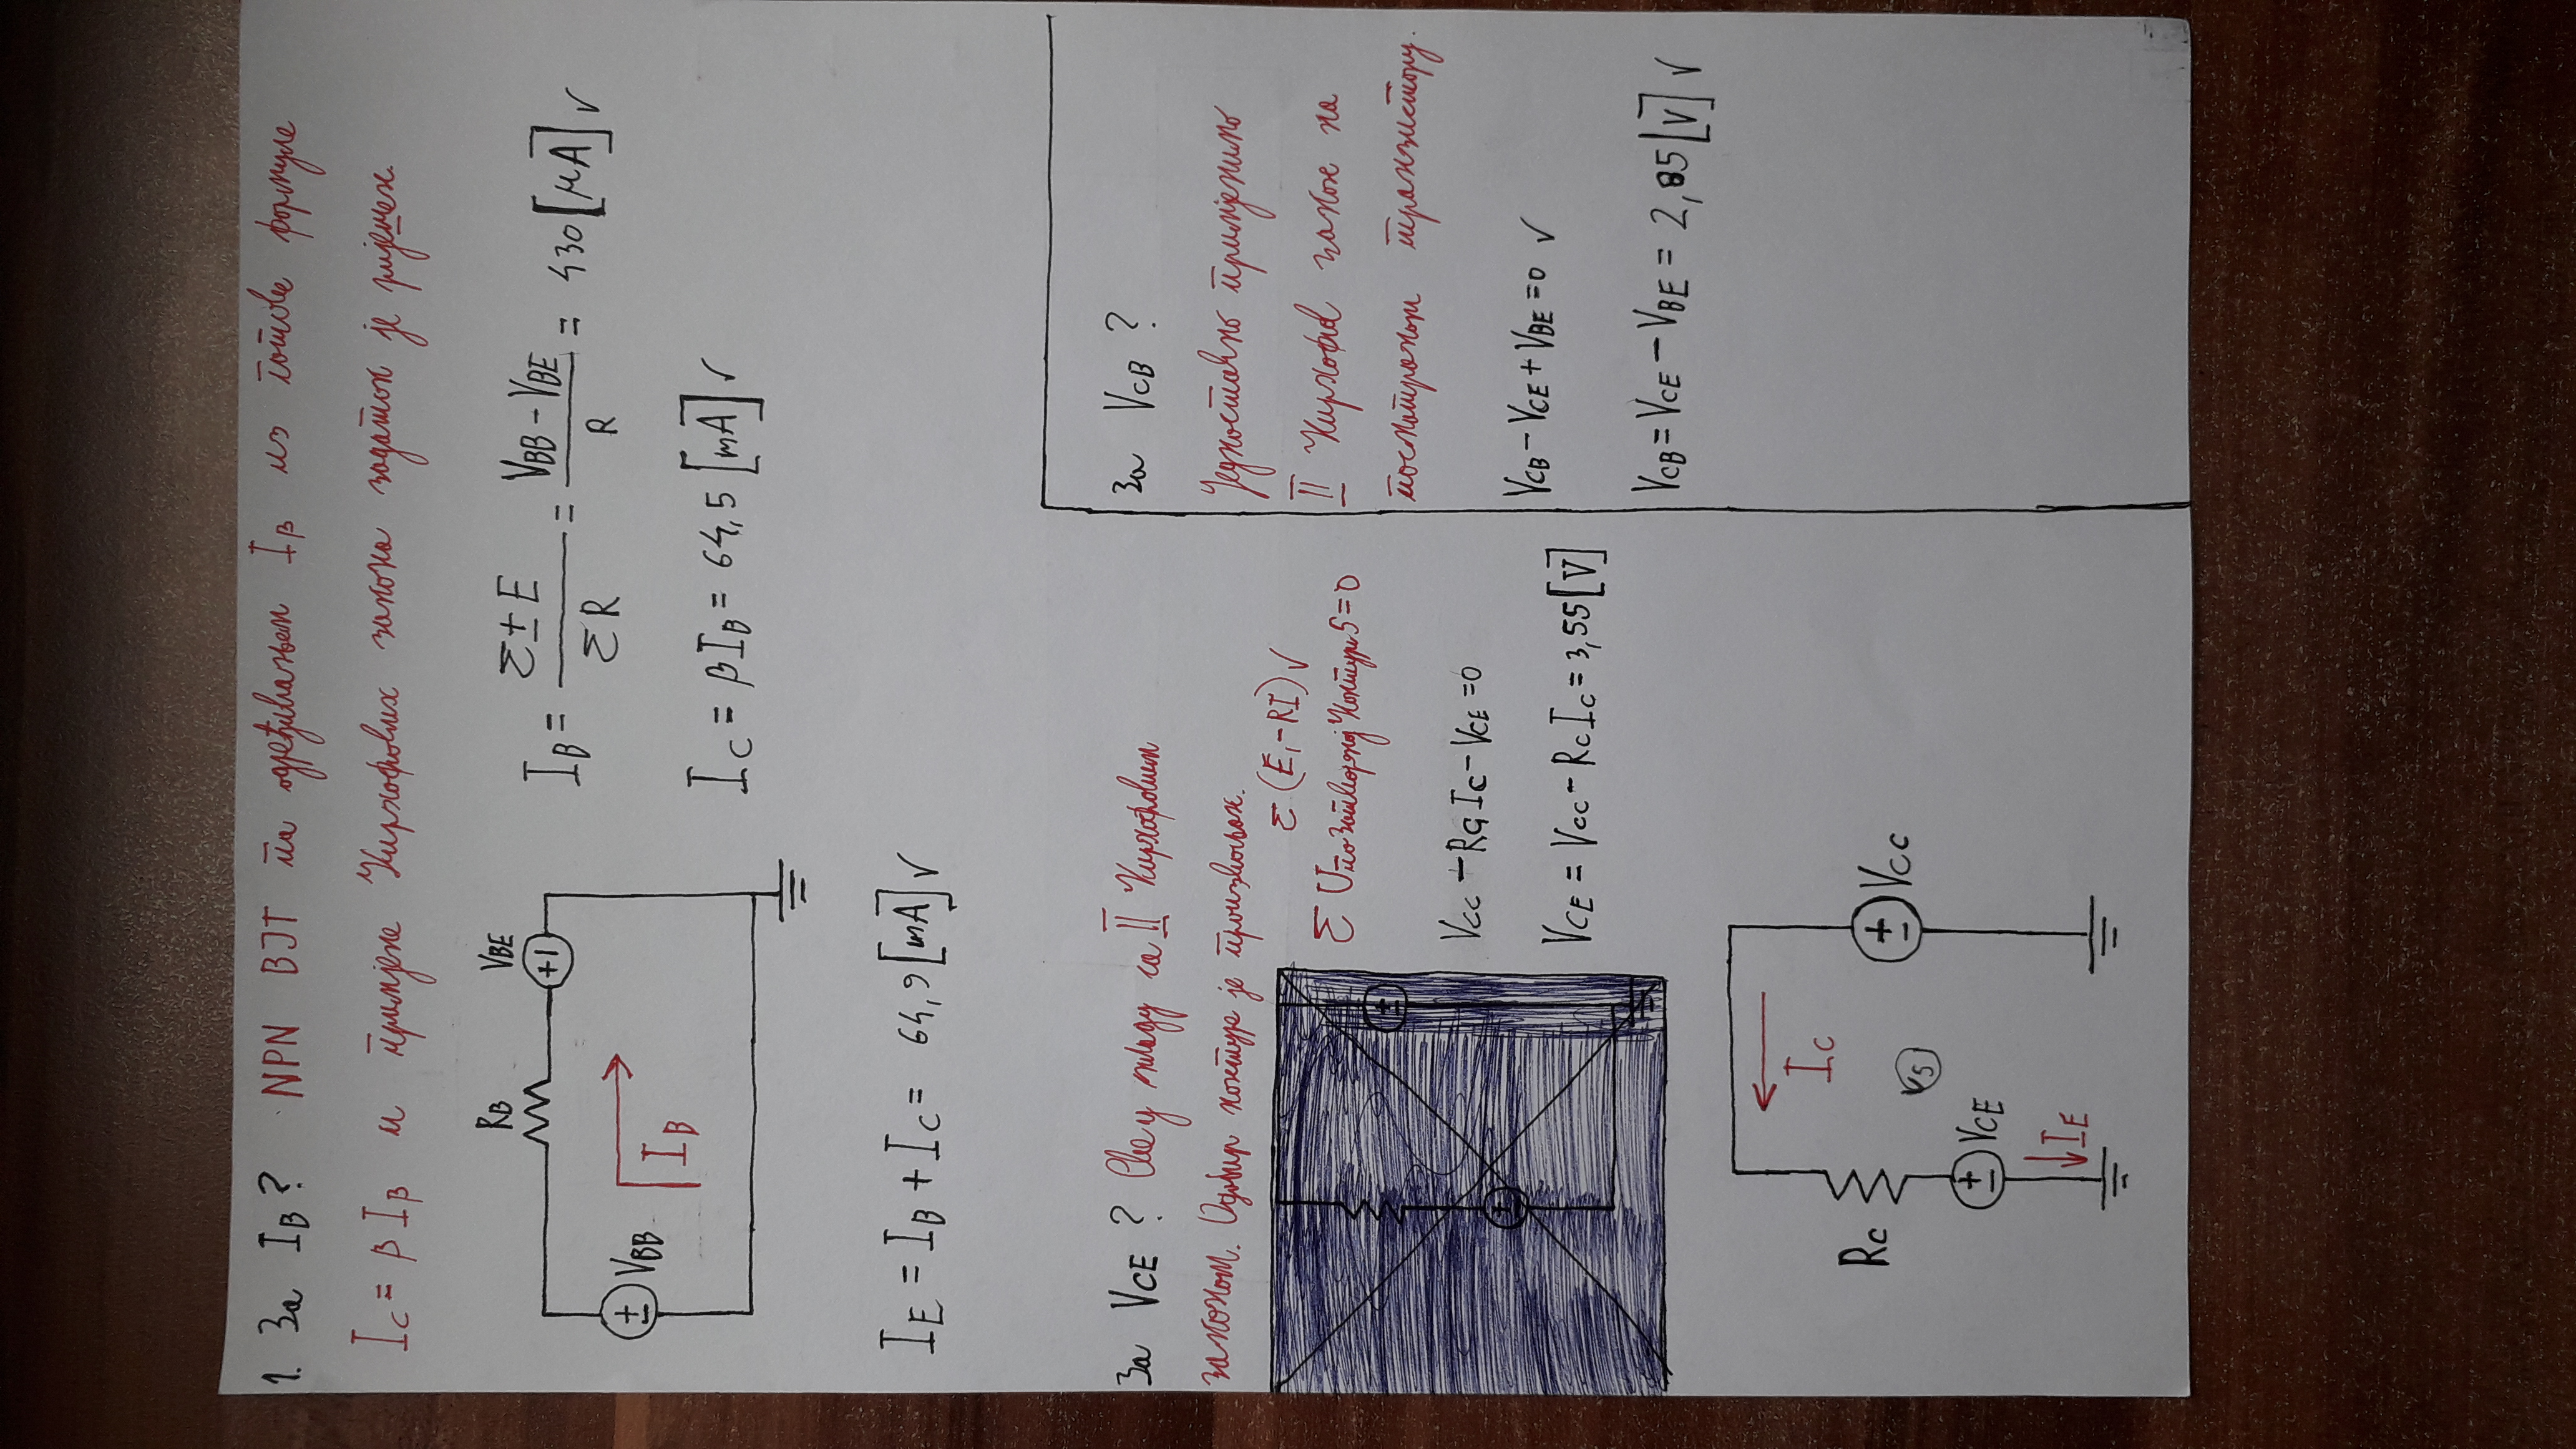 1. За IB? NPN BJT па одређивањем IB из готове формуле
IC = βIB и примјене Кирхофових закона задатак је ријешен.
RB
VBE
+ -
VBB
IB
IB = Σ±E / ΣR = VBB - VBE / R = 430 [μA] ✓
IC = βIB = 64,5 [mA] ✓
IE = IB + IC = 64,9 [mA] ✓
За VCE? Све у складу са II Кирхофовим
законом. Одабир контуре је произвољан.
Σ (E, -RI) ✓
Σ U по затвореној контури S = 0
VCC - RC IC - VCE = 0
VCE = VCC - RC IC = 3,55 [V]
IC
RC
S
VCC
VCE
IE
За VCB?
Једноставно примјенимо
II Кирхофов закон на
посматраном транзистору.
VCB - VCE + VBE = 0 ✓
VCB = VCE - VBE = 2,85 [V] ✓